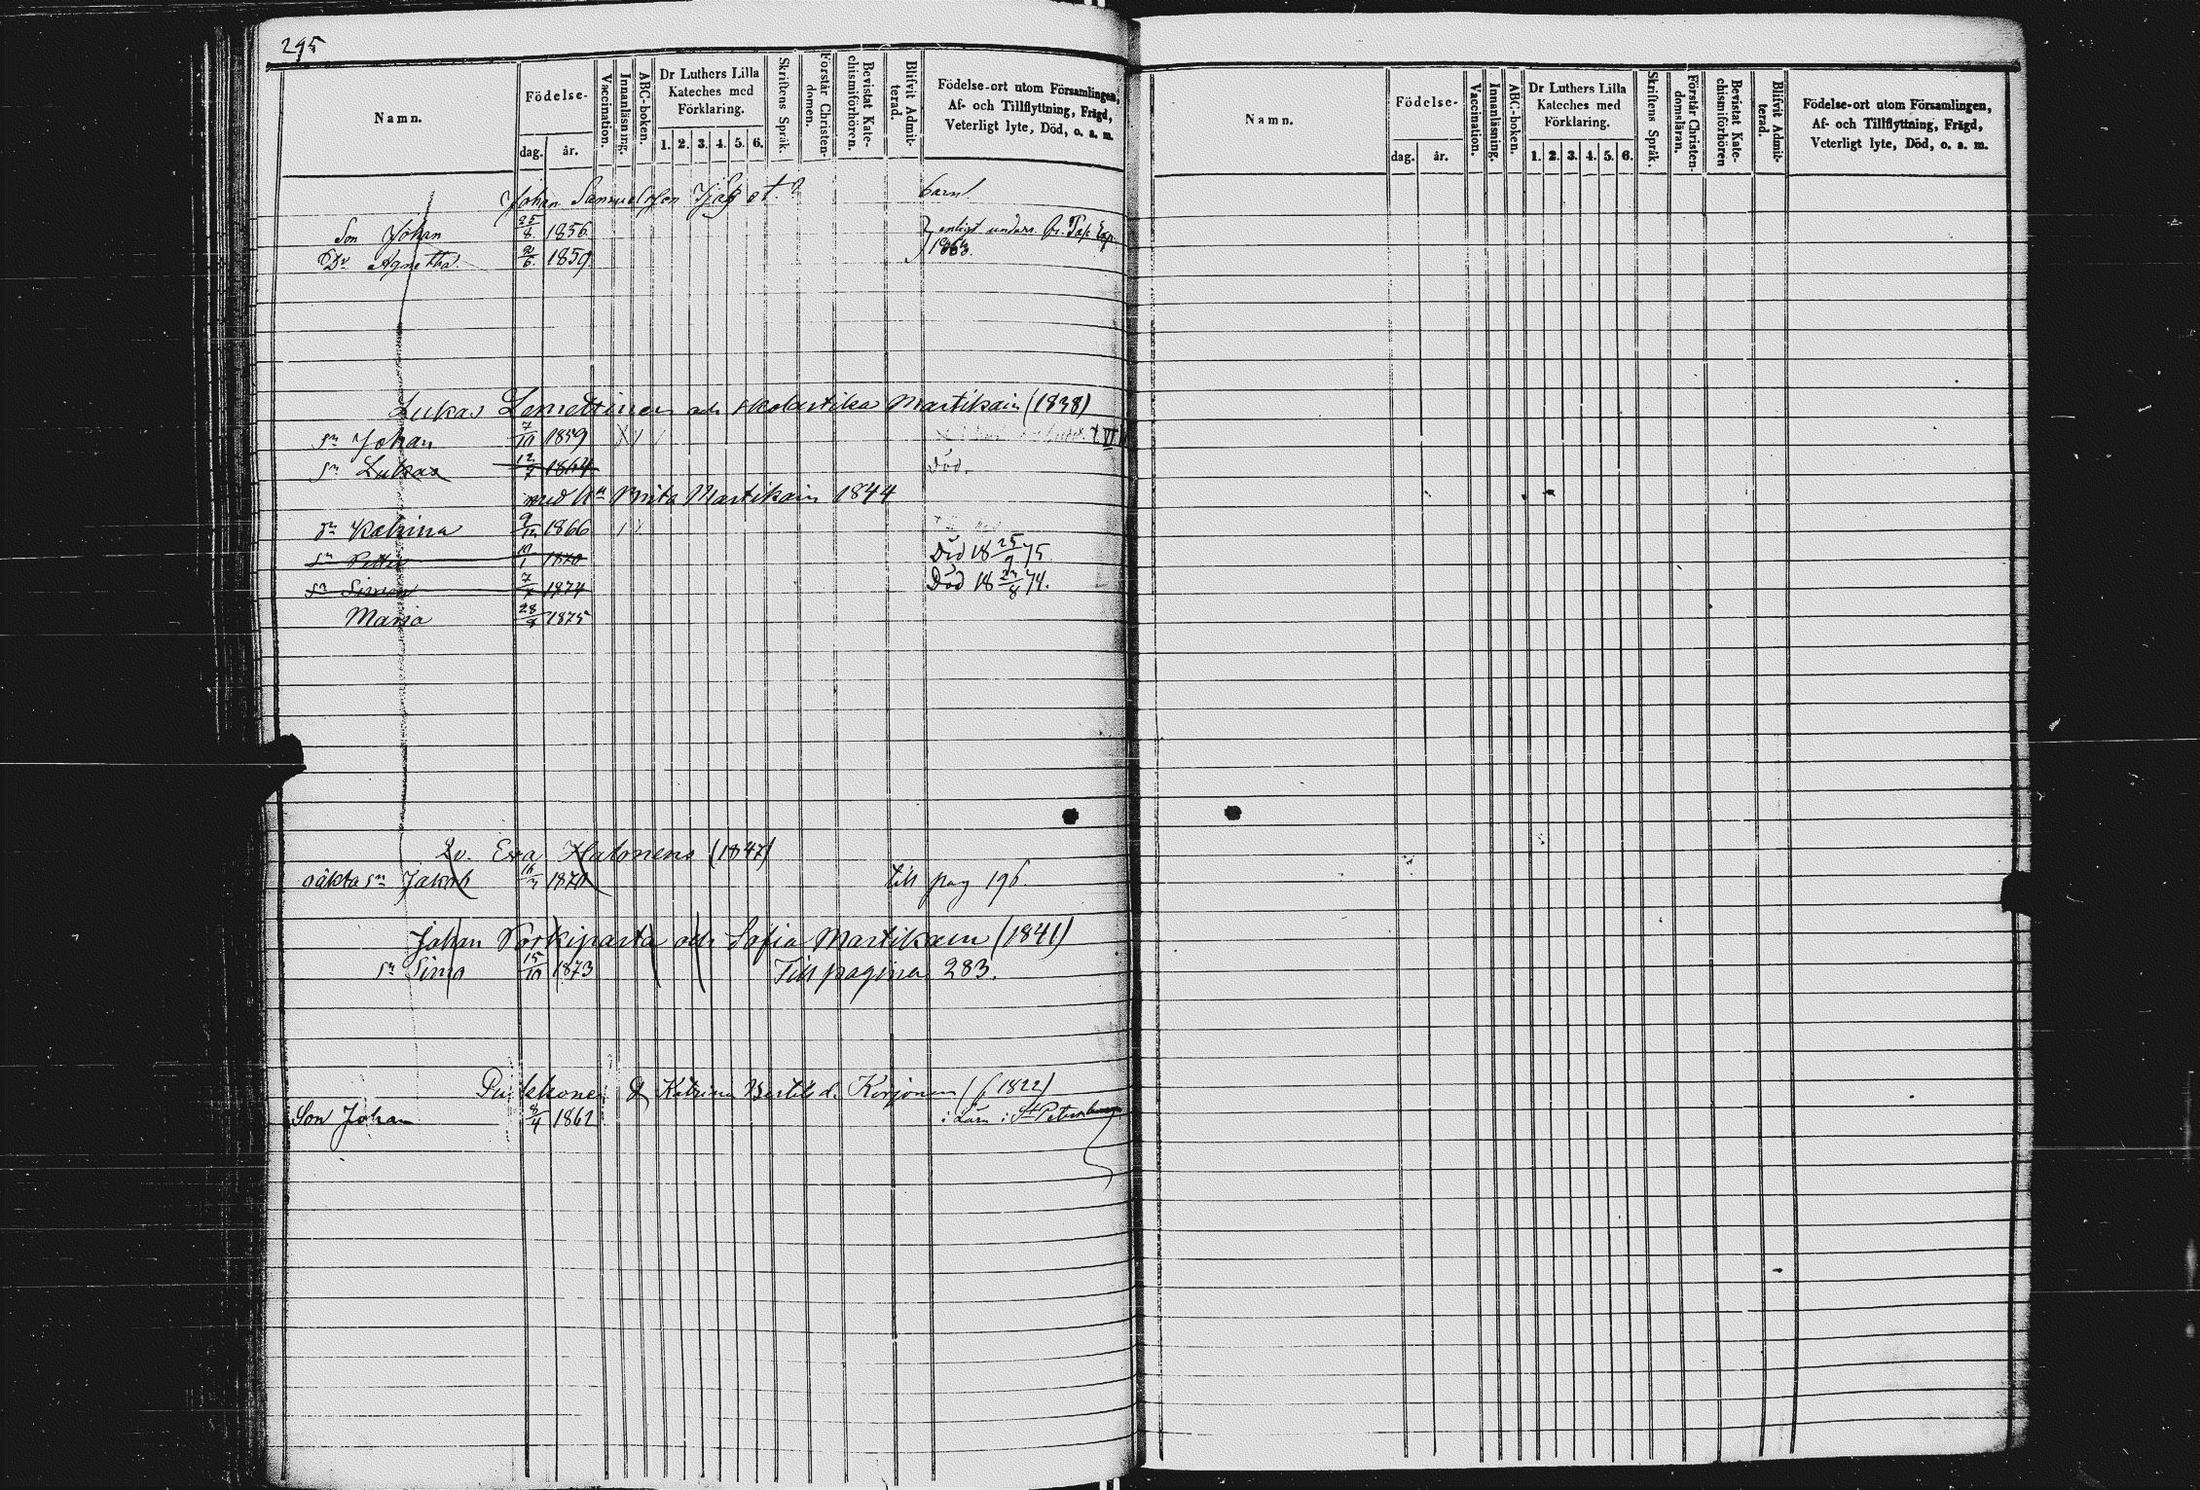 295
Namn. Födelse- dag. år. Vaccination. Innanläsning. ABC-boken. Dr Luthers Lilla Kateches med Förklaring. 1. 2. 3. 4. 5. 6. Skriftens Språk. Förstår Christendomen. Bevistat Katechismiförhören. Blifvit Admitterad. Födelse-ort utom Församlingen, Af- och Tillflyttning, Frägd, Veterligt lyte, Död, o. s. m.
Johan Samuelsson barn
Son Johan 25/8 1856 enligt
Dr Agnetha 1859 1863.
Lukas Lemettinen och skolastika Martikain (1838)
sn Johan 7/10 1859
sn Lukas 1864 Död.
med Hu Brita Martikain 1844
dr Katrina 9/12 1866
sn Petter 1870 Död 18 25/9 75
sn Simon 1874 Död 18 23/8 74.
Maria 28/9 1875
Qv. Eva Halonens (1847)
oäkta sn Jakob 1870 till pag 196.
Johan Porkiparta och Sofia Martikain (1841)
sn Simo 15/10 1873 Till pagina 283.
Pukkonen & Katrina Bertilsd. Korjonen (f 1822)
Son Johan 1862 St Petersburg
Namn. Födelse- dag. år. Vaccination. Innanläsning. ABC-boken. Dr Luthers Lilla Kateches med Förklaring. 1. 2. 3. 4. 5. 6. Skriftens Språk. Förstår Christendomsläran. Bevistat Katechismiförhören Blifvit Admitterad. Födelse-ort utom Församlingen, Af- och Tillflyttning, Frägd, Veterligt lyte, Död, o. s. m.